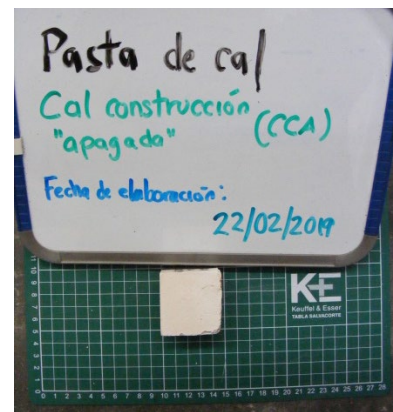 Pasta de cal
Cal construcción
"apagada" (CCA)
Fecha de elaboración:
22/02/2019
K+E
Keuffel & Esser
TABLA SALVACORTE
0 1 2 3 4 5 6 7 8 9 10 11 12 13 14 15 16 17 18 19 20 21 22 23 24 25 26 27 28